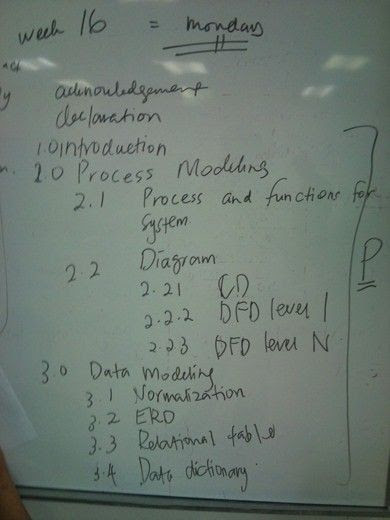 week 16 = monday
act
y
acknowledgement
declaration
1.0 Introduction
n. 2.0 Process Modeling
2.1 Process and functions for
system
2.2 Diagram
2.21 CD
2.2.2 DFD level 1
2.23 DFD level N
P
3.0 Data modeling
3.1 Normalization
3.2 ERD
3.3 Relational table
3.4 Data dictionary.